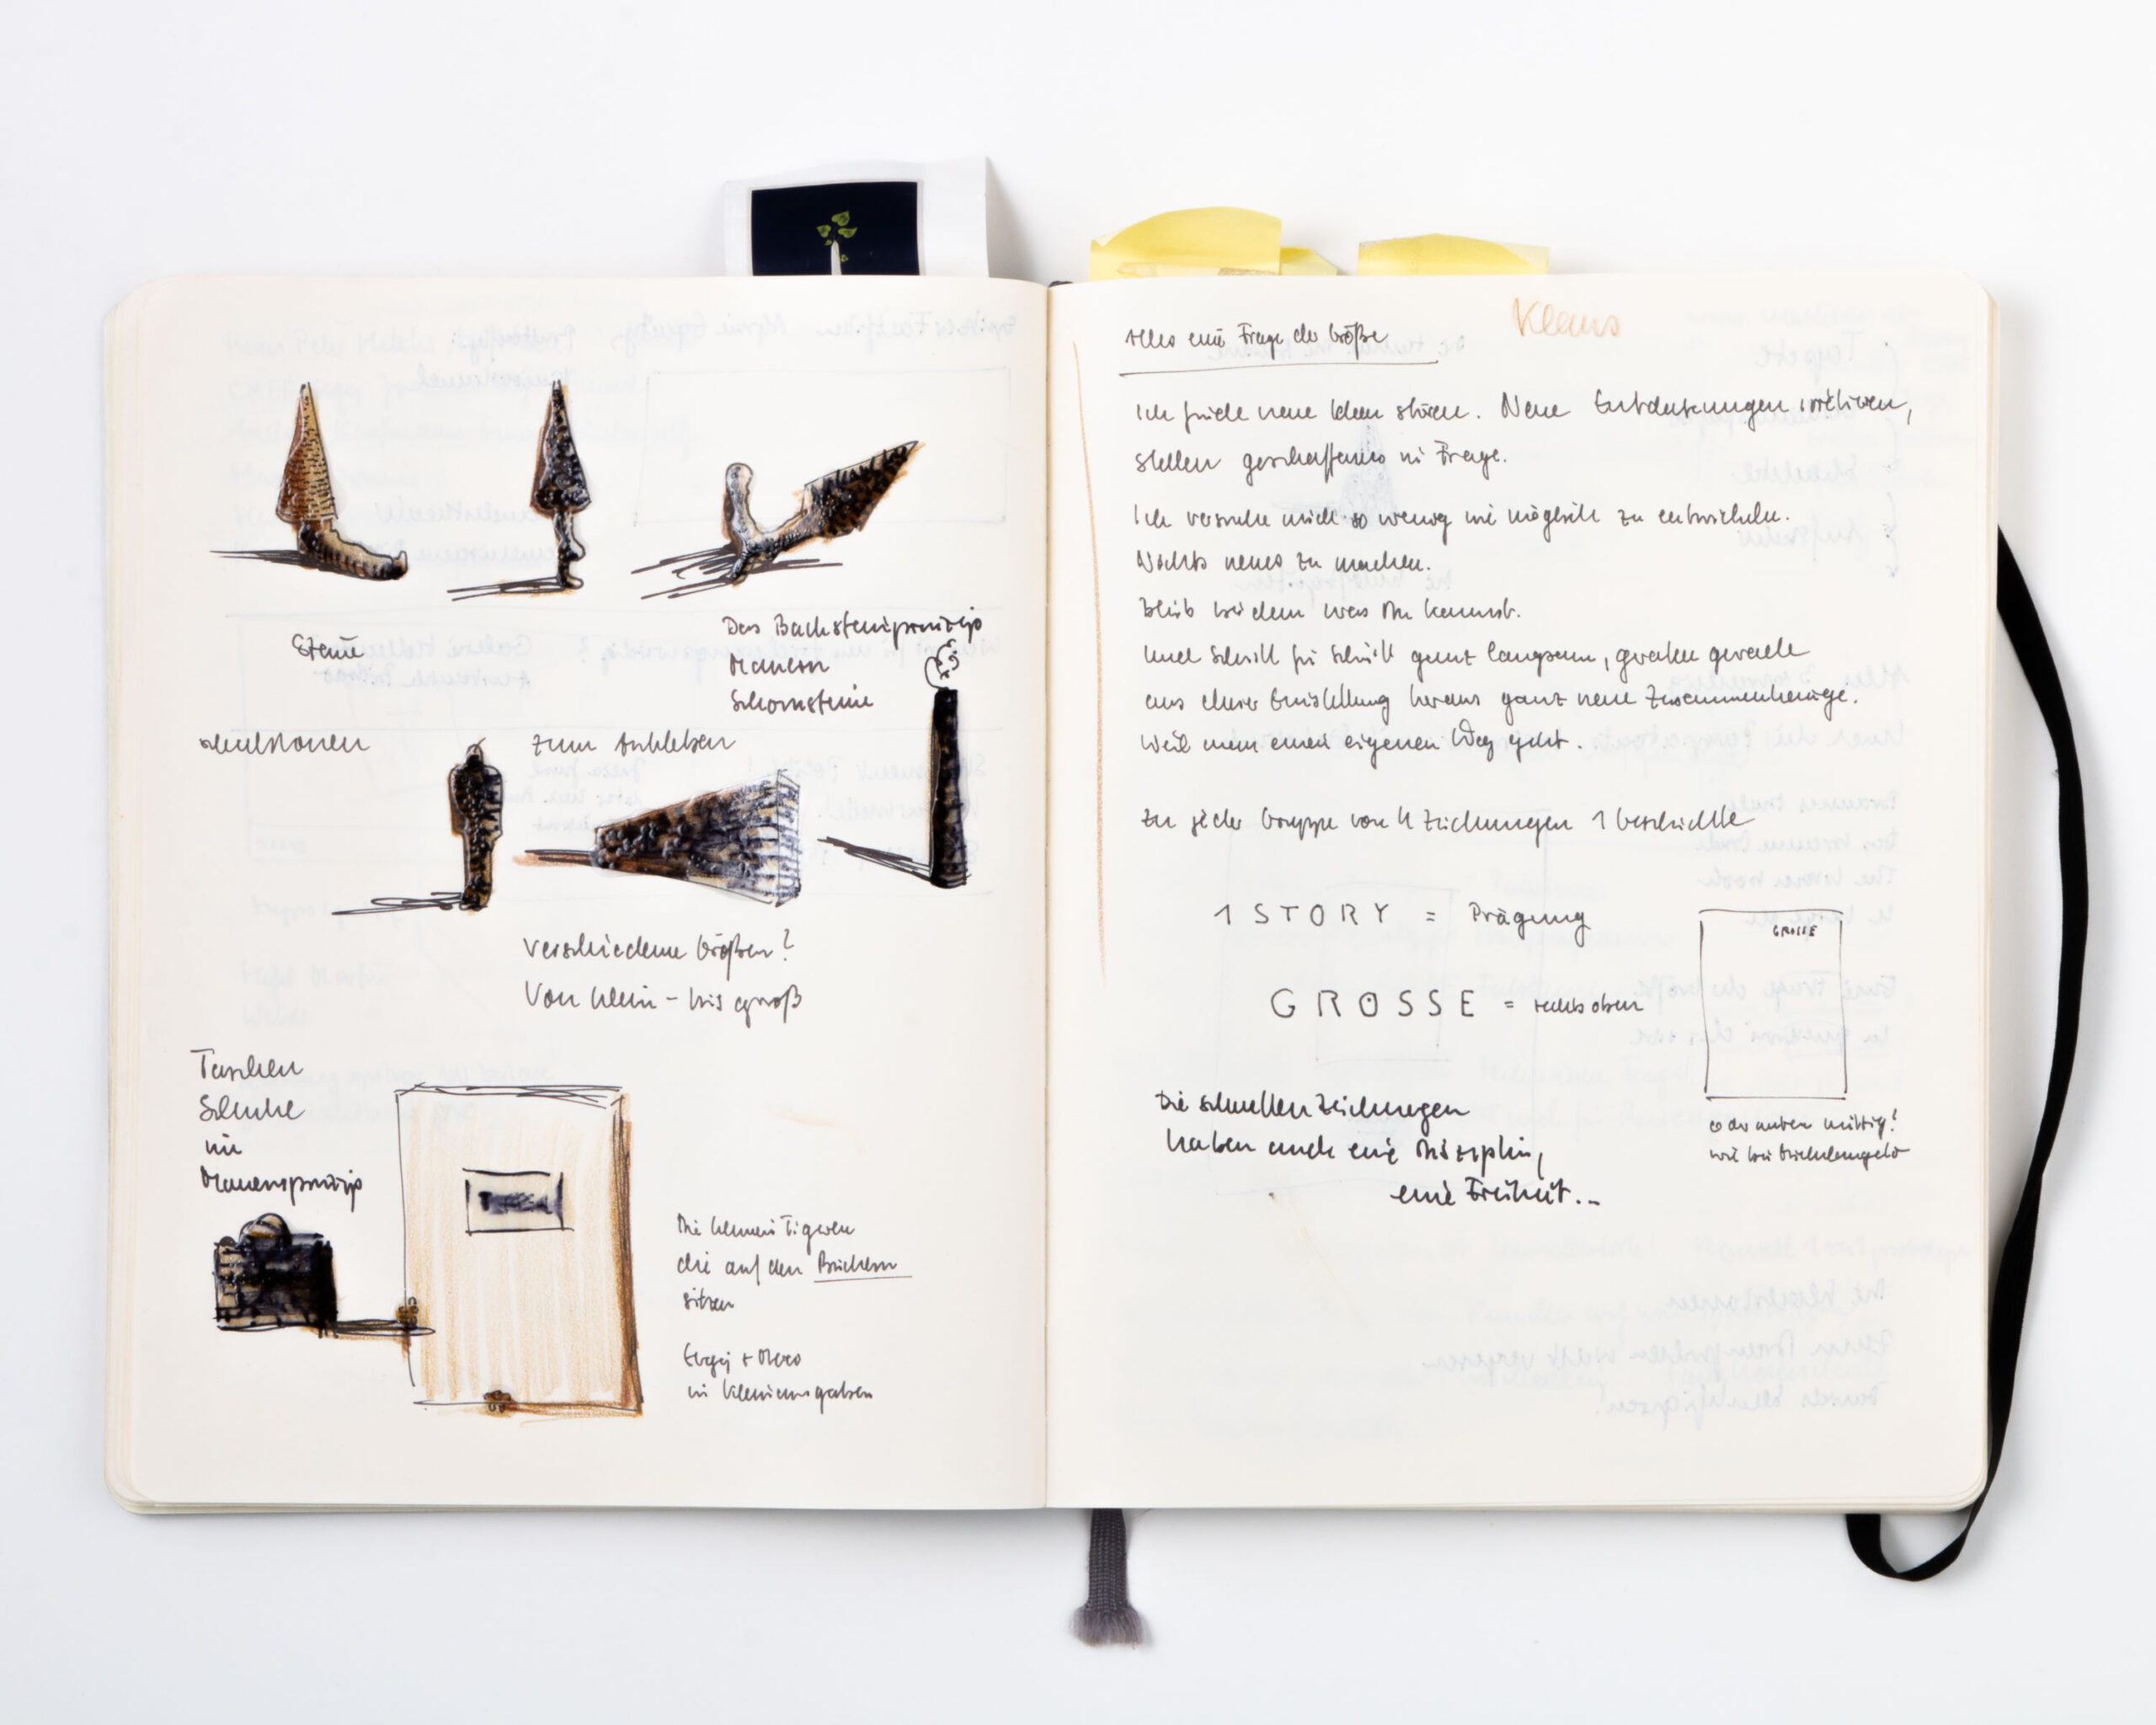 Steine
Das Backsteinprinzip
Mauern
Schornsteine
zum Ankleben
Verschiedene Größen?
Von klein – bis groß
Taschen
Schuhe
im
Mauernsprinzip
Die kleinen Figuren
die auf den Büchern
sitzen
in Kleinausgaben
Klaus
Alles eine Frage der Größe
Ich finde neue Ideen stören. Neue Entdeckungen irritieren,
stellen geschaffenes in Frage.
Ich versuche mich so wenig wie möglich zu entwickeln.
Nichts neues zu machen.
Bleib bei dem was Du kannst.
Und Schritt für Schritt ganz langsam, geraten gerade
aus dieser Einstellung heraus ganz neue Zusammenhänge.
Weil man einen eigenen Weg geht.
Zu jeder Gruppe von 4 Zeichnungen 1 Geschichte
1 STORY = Prägung
GROSSE
GRÖSSE = rechts oben
oder unten mittig?
wie bei
Die schnellen Zeichnungen
haben auch eine Disziplin,
eine Freiheit..